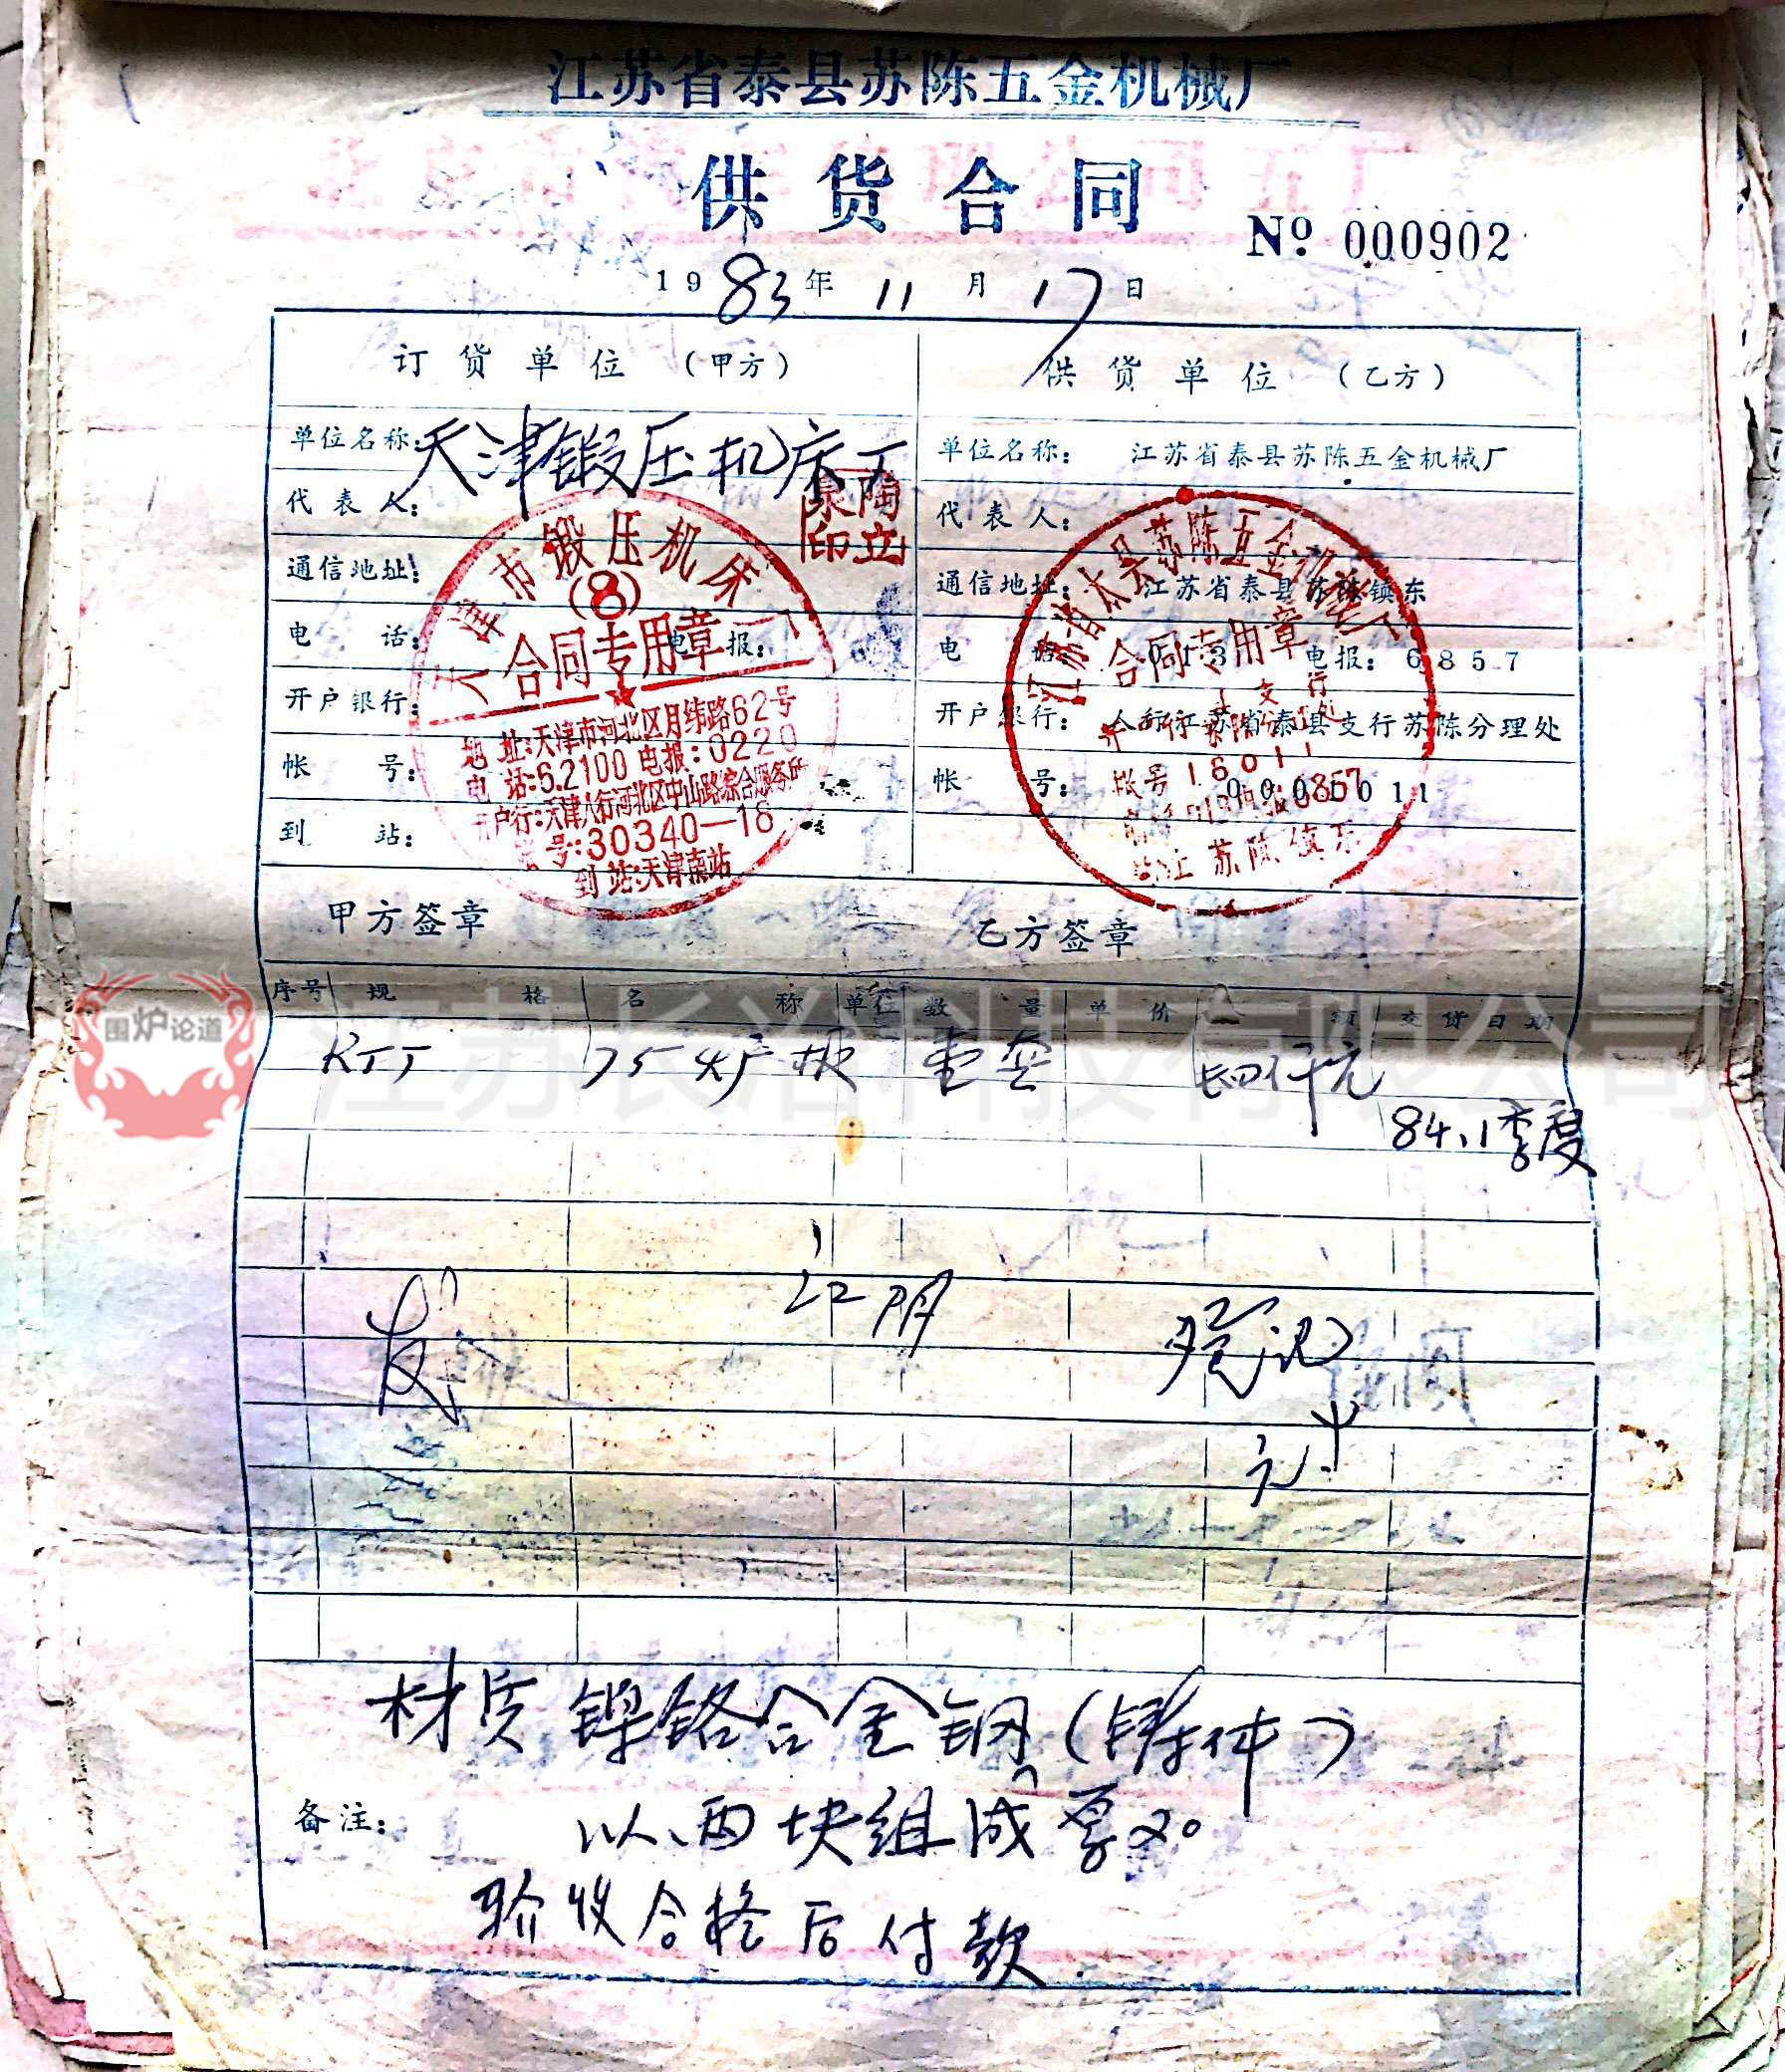 江苏省泰县苏陈五金机械厂
供货合同
Nº 000902
1983年11月17日
订货单位（甲方） 供货单位（乙方）
单位名称：天津锻压机床厂 单位名称：江苏省泰县苏陈五金机械厂
代表人： 代表人：
通信地址： 通信地址：江苏省泰县苏陈镇东
电话： 电报： 电话： 013 电报：6857
开户银行： 开户银行：人行江苏省泰县支行苏陈分理处
帐号： 帐号：
到站：
天津市锻压机床厂
(8)
合同专用章
地址:天津市河北区月纬路62号
电话:6.2100 电报:0220
开户行:天津人行河北区中山路综合服务所
帐号:30340—18
到站:天津南站
苏陈五金机械厂
合同专用章
帐号16011
苏陈镇东
甲方签章 乙方签章
序号 规格 名称 单位 数量 单价 金额 交货日期
RJJ 75炉板 壹套 四仟元
84.1季度
江阴
登记
材质 镍铬合金钢（铸件）
备注： 以两块组成 厚20
验收合格后付款
围炉论道
江苏长冶科技有限公司